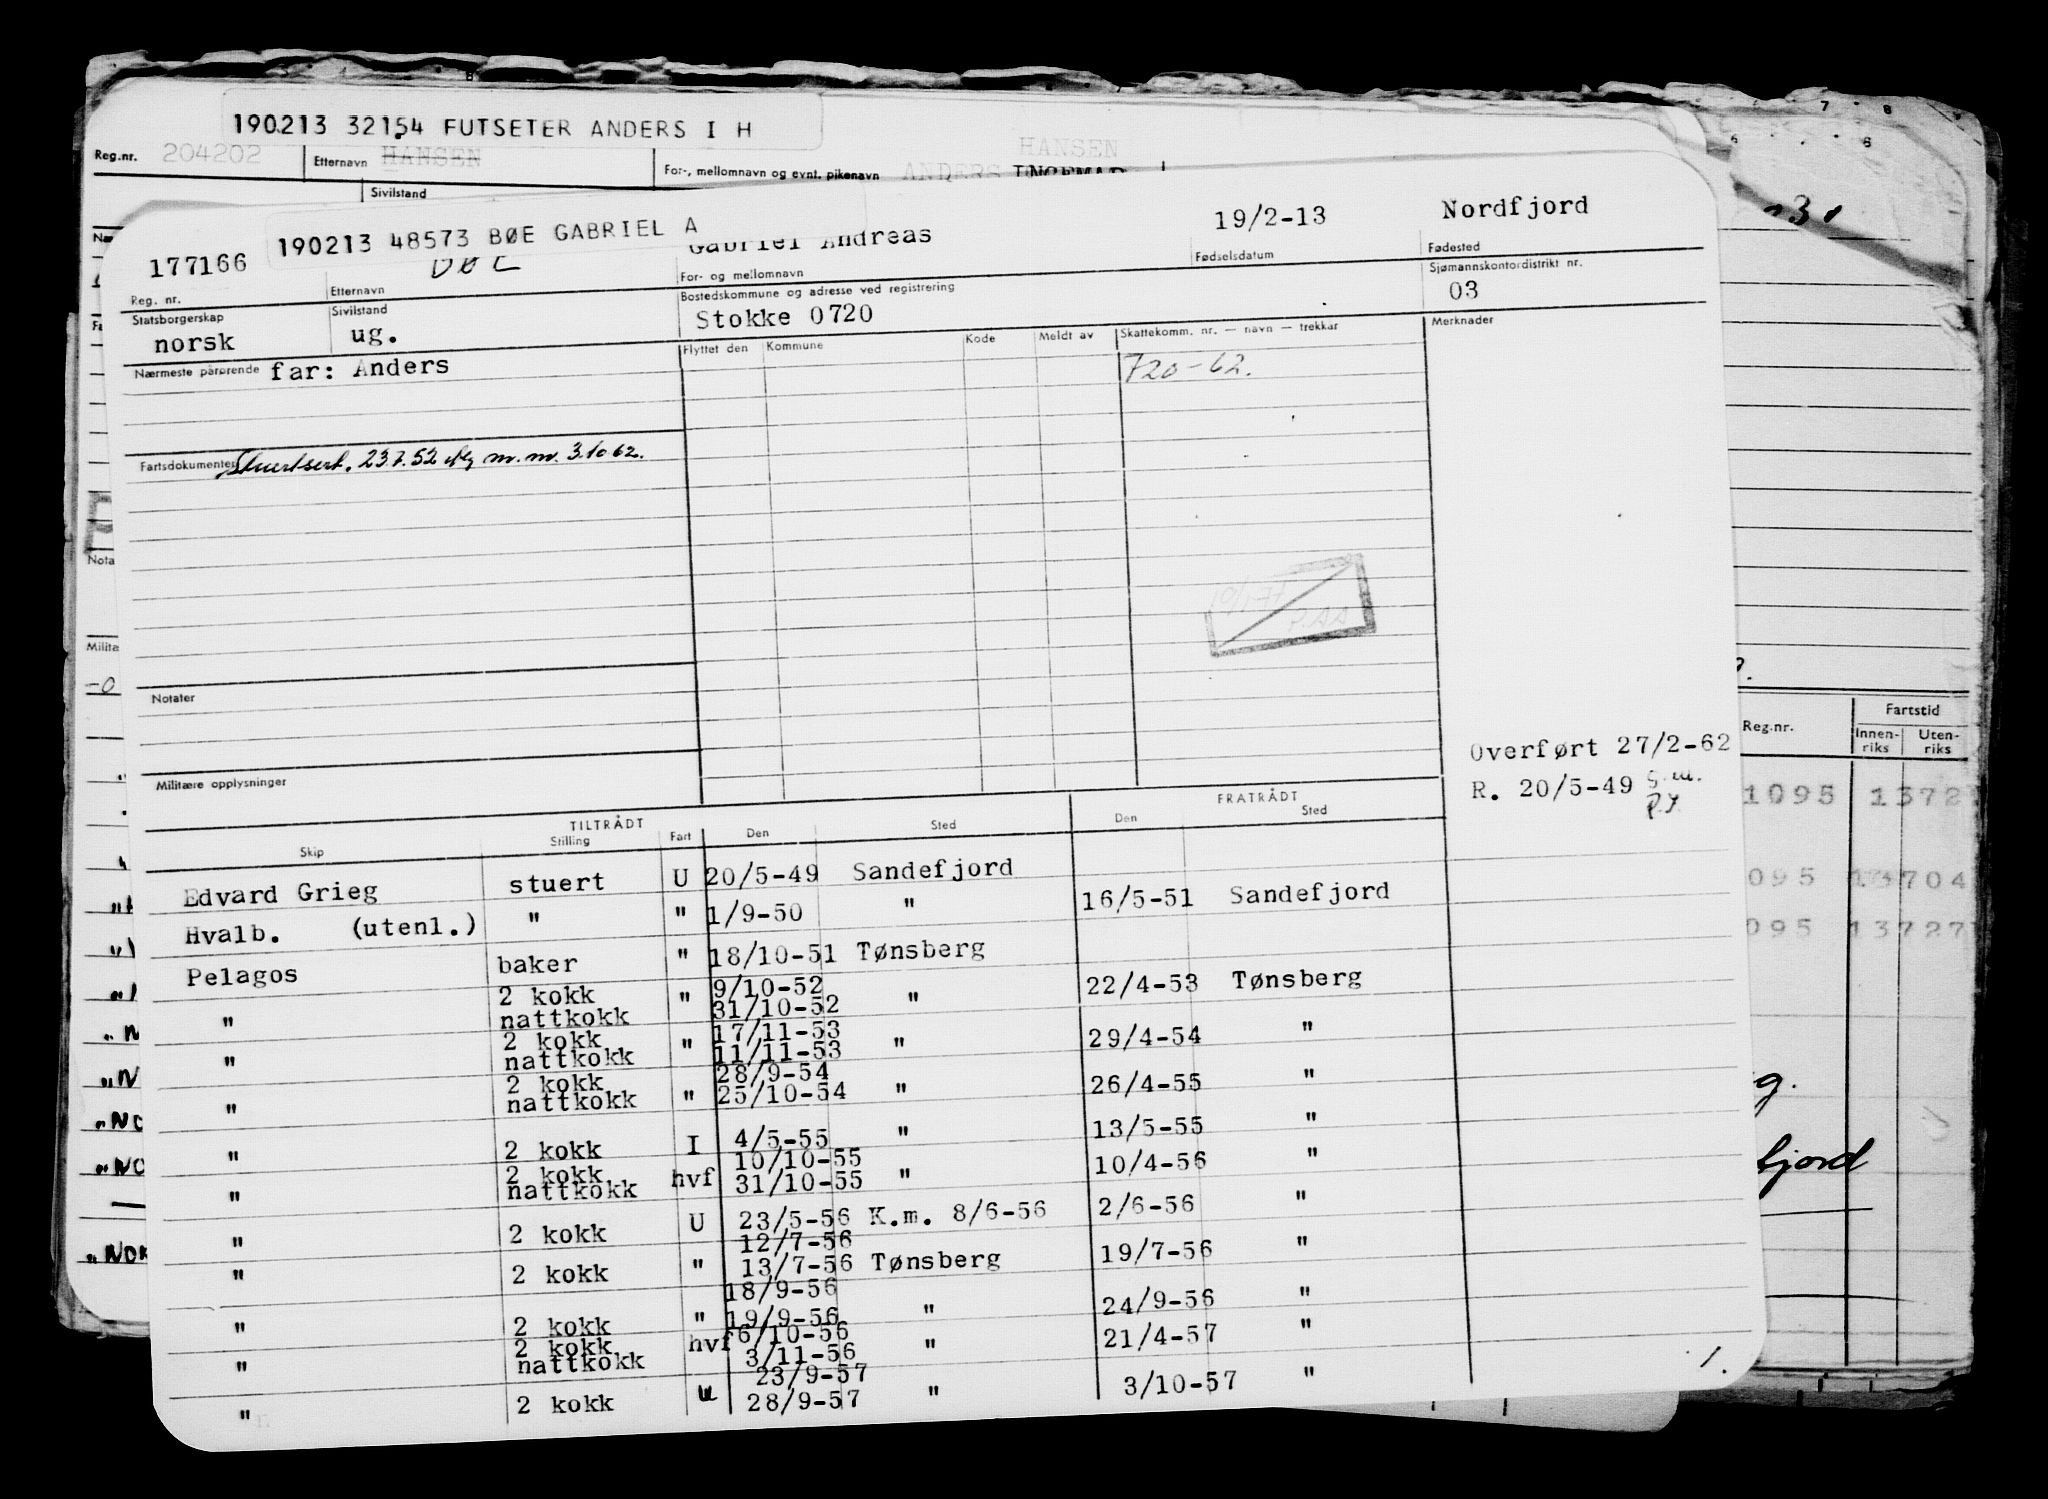 190213 32154 FUTSETER ANDERS I H
Reg.nr. 204202 Etternavn HANSEN For-, mellomnavn og evnt. pikenavn HANSEN ANDERS INGEMAR
Sivilstand
190213 48573 BØE GABRIEL A
177166 BØE Gabriel Andreas 19/2-13 Nordfjord
Reg. nr. Etternavn For- og mellomnavn Fødselsdatum Fødested
Statsborgerskap Sivilstand Bostedskommune og adresse ved registrering Sjømannskontordistrikt nr.
norsk ug. Stokke 0720 03
Nærmeste pårørende far: Anders
Flyttet den Kommune Kode Meldt av Skattekomm. nr. — navn — trekkår Merknader
720-62.
Fartsdokumenter Stuertsert. 23.7.52 m.m. 3.10 62.
P.AA
Notater
Militære opplysninger
Overført 27/2-62
R. 20/5-49 g.m.
P.J.
TILTRÅDT FRATRÅDT
Skip Stilling Fart Den Sted Den Sted
Edvard Grieg stuert U 20/5-49 Sandefjord
Hvalb. (utenl.) " " 1/9-50 " 16/5-51 Sandefjord
Pelagos baker " 18/10-51 Tønsberg
2 kokk 9/10-52
" nattkokk " 31/10-52 " 22/4-53 Tønsberg
2 kokk 17/11-53
" nattkokk " 11/11-53 " 29/4-54 "
2 kokk 28/9-54
" nattkokk " 25/10-54 " 26/4-55 "
" 2 kokk I 4/5-55 " 13/5-55 "
2 kokk 10/10-55
" nattkokk hvf 31/10-55 " 10/4-56 "
" 2 kokk U 23/5-56 K.m. 8/6-56 2/6-56 "
12/7-56
" 2 kokk " 13/7-56 Tønsberg 19/7-56 "
18/9-56
" 2 kokk " 19/9-56 " 24/9-56 "
2 kokk 6/10-56
" nattkokk hvf 3/11-56 " 21/4-57 "
23/9-57
" 2 kokk U 28/9-57 " 3/10-57 "
1.
Reg.nr. Fartstid
Innen-riks Uten-riks
1095 1372
095 13704
095 13727
fjord